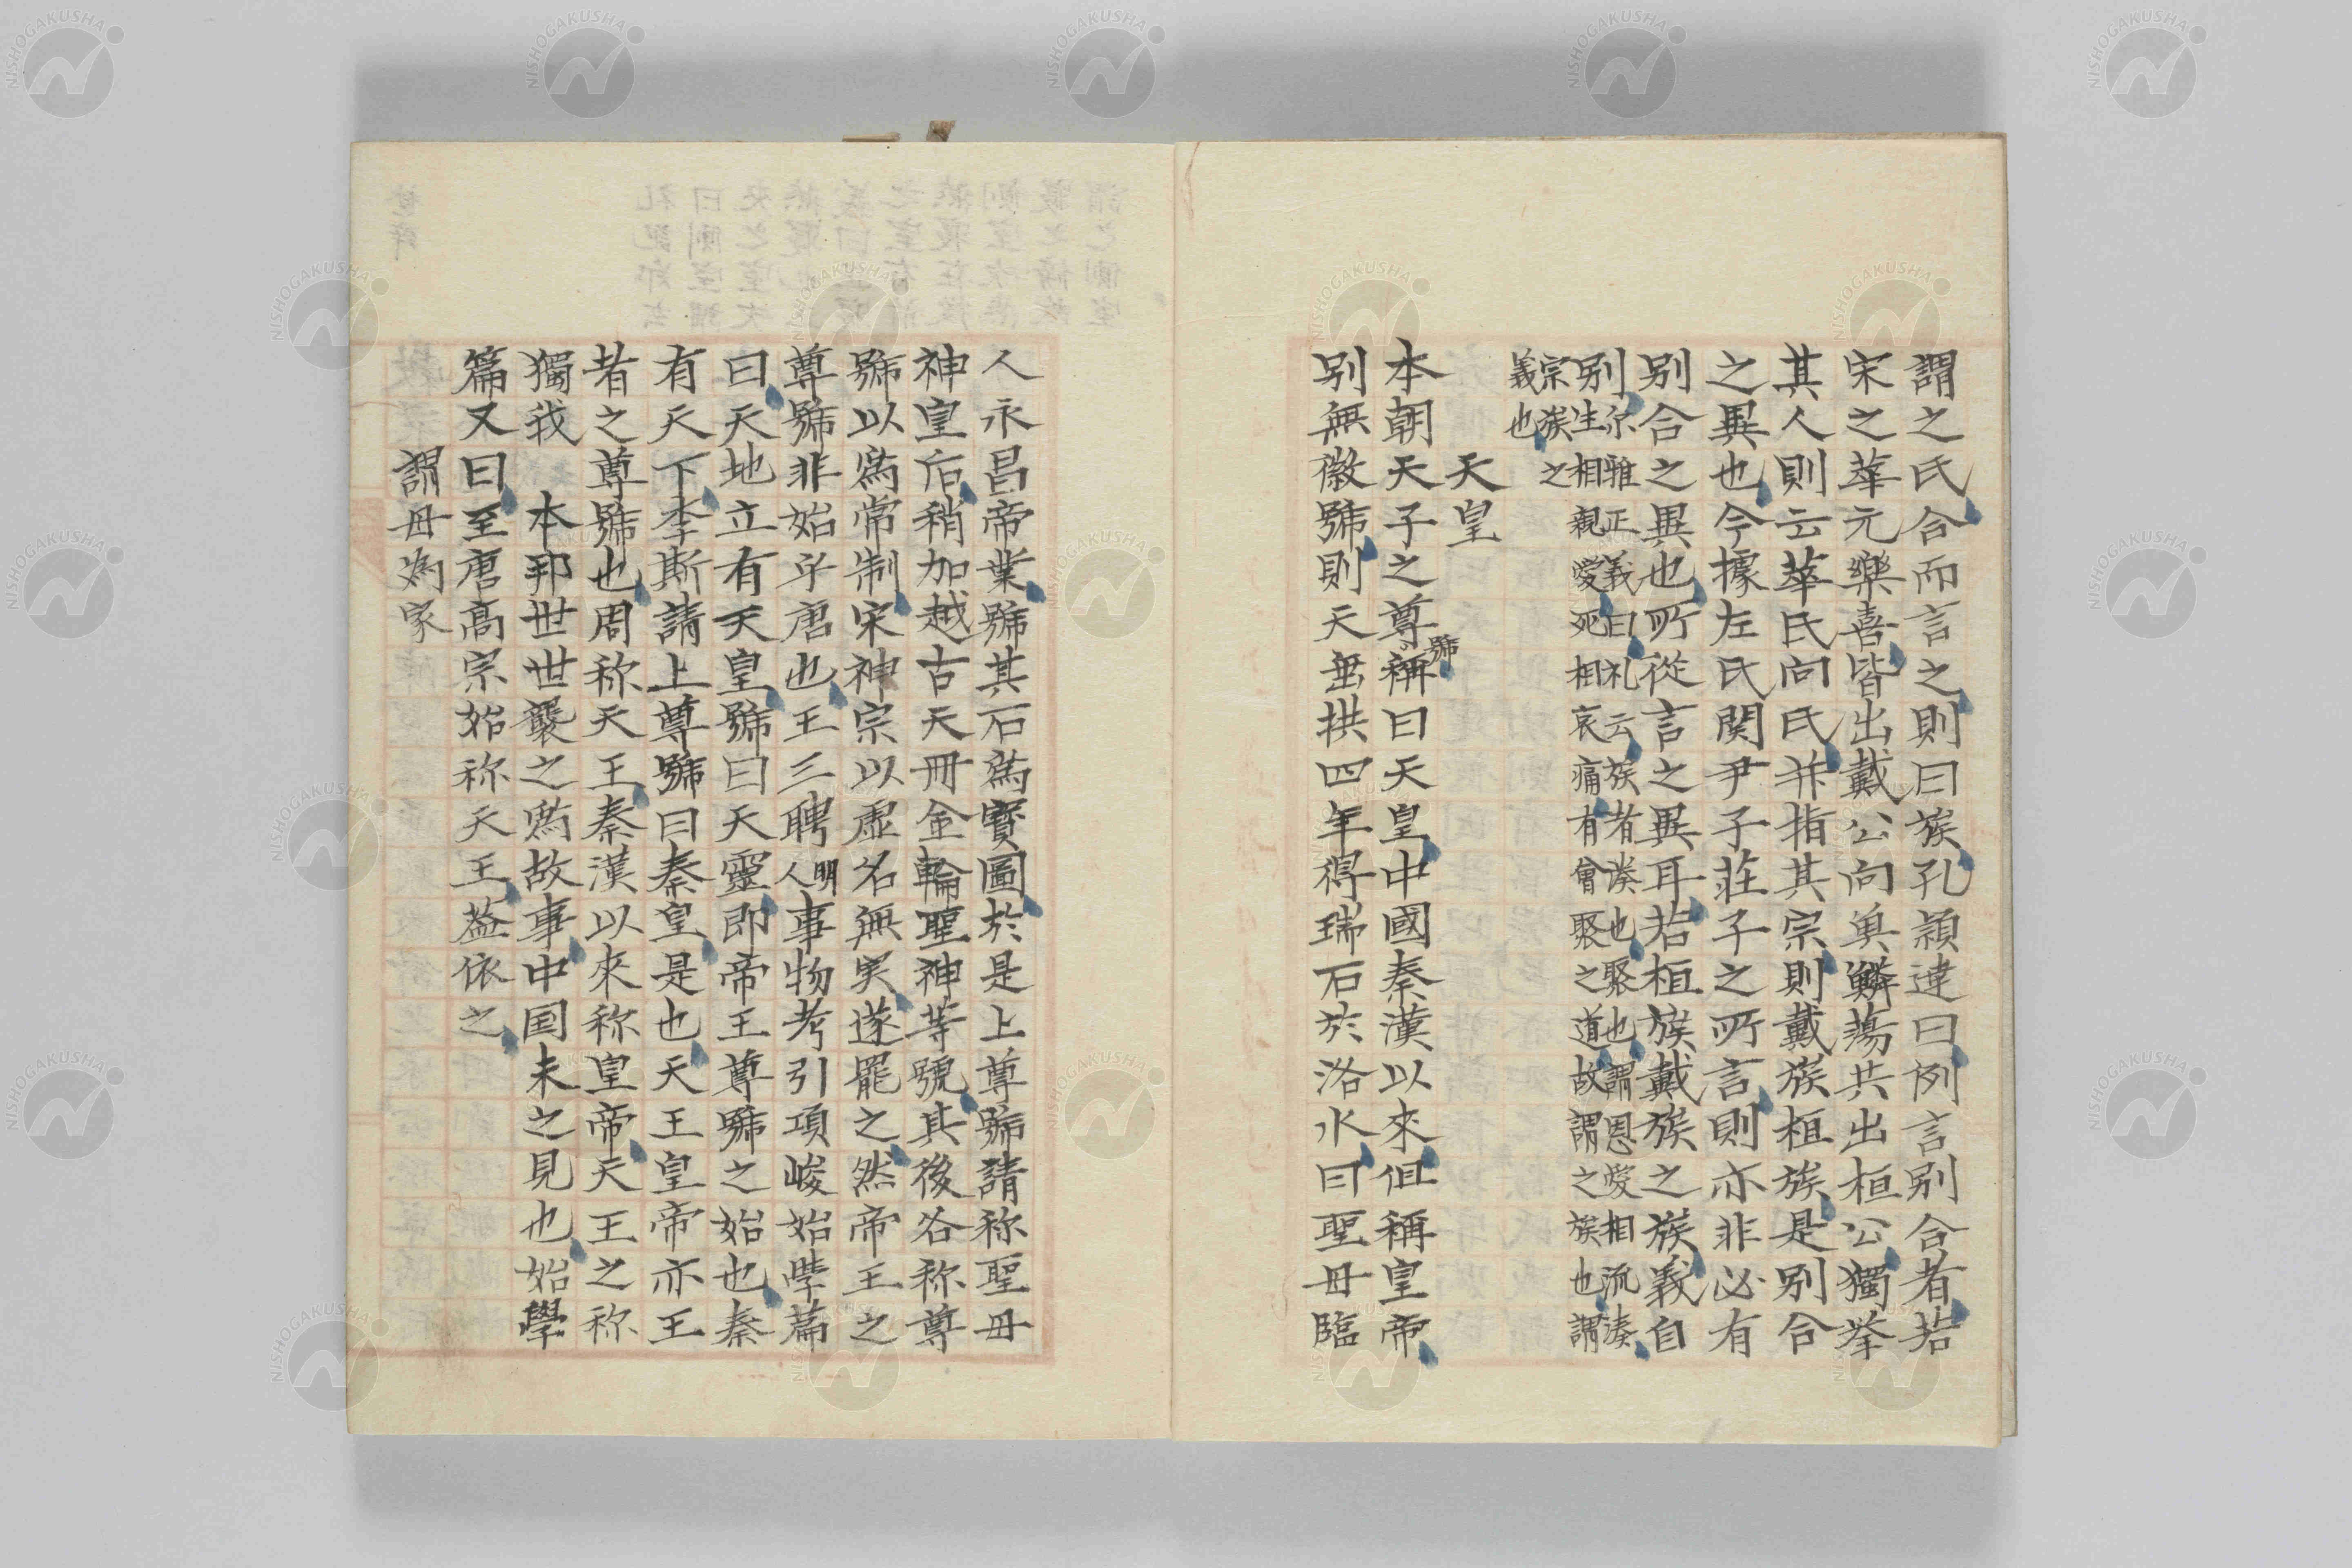 謂之氏合而言之則曰族孔穎達曰例言別合者若
宋之華元樂喜皆出戴公向魚鱗蕩共出桓公獨挙
其人則云華氏向氏并指其宗則戴族桓族是別合
之異也今據左氏関尹子莊子之所言則亦非必有
別合之異也所從言之異耳若桓族戴族之族義自
別尔雅正義曰礼云族者湊也聚也謂恩愛相流湊
生相親愛死相哀痛有會聚之道故謂之族也謂
宗族之
義也
天皇
本朝天子之尊稱號曰天皇中國秦漢以來但稱皇帝
別無徽號則天垂拱四年得瑞石於洛水曰聖母臨
人永昌帝業號其石為寶圖於是上尊號請称聖母
神皇后稍加越古天冊金輪聖神等號其後各称尊
號以為常制宋神宗以虛名無実遂罷之然帝王之
尊號非始乎唐也王三聘明人事物考引項峻始學篇
曰天地立有天皇號曰天靈即帝王尊號之始也秦
有天下李斯請上尊號曰秦皇是也天王皇帝亦王
者之尊號也周称天王秦漢以來称皇帝天王之称
獨我
本邦世世襲之為故事中国未之見也始學
篇又曰至唐高宗始称天王蓋依之
謂母為家
NISHOGAKUSHA